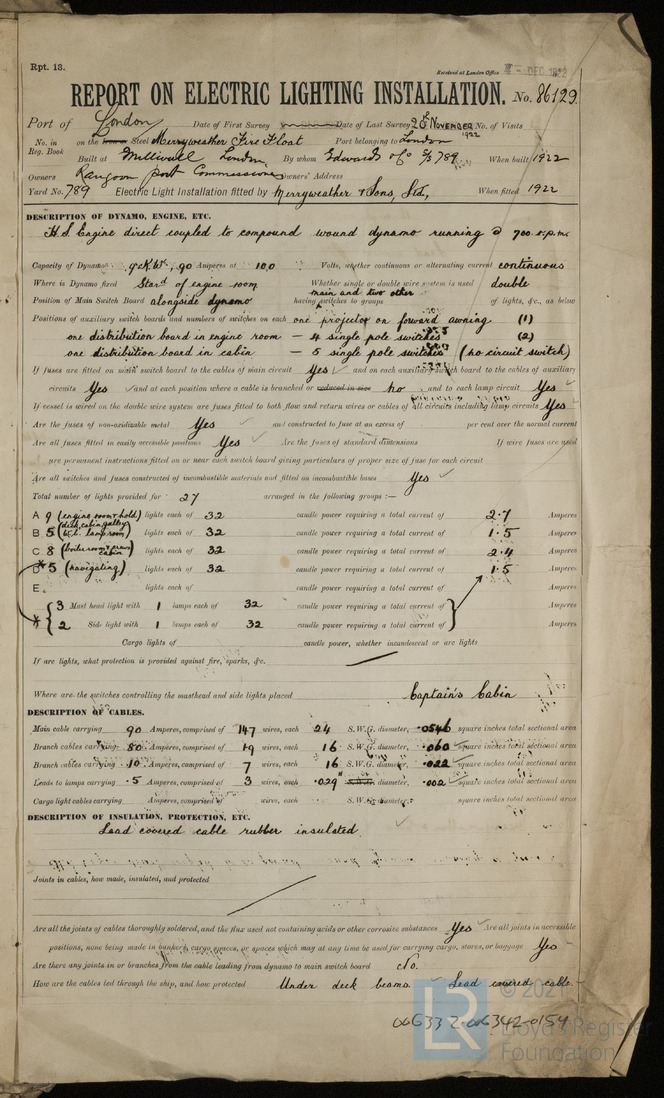 Rpt. 13.
Received at London Office DEC 1922
REPORT ON ELECTRIC LIGHTING INSTALLATION. No. 86129
Port of London Date of First Survey Date of Last Survey 20th November 1922 No. of Visits
No. in Reg. Book on the Iron or Steel Merryweather Fire Float Port belonging to London
Built at Millwall London By whom Edwards & Co S/S 789 When built 1922
Owners Rangoon Port Commissioners Owners' Address
Yard No. 789 Electric Light Installation fitted by Merryweather & Sons, Ltd, When fitted 1922
DESCRIPTION OF DYNAMO, ENGINE, ETC.
H.S Engine direct coupled to compound wound dynamo running @ 700 r.p.m.
Capacity of Dynamo 9 K.W. 90 Amperes at 100 Volts, whether continuous or alternating current continuous
Where is Dynamo fixed Starbd of engine room Whether single or double wire system is used double
Position of Main Switch Board alongside dynamo having switches to groups main and two other of lights, &c., as below
Positions of auxiliary switch boards and numbers of switches on each one projector on forward awning (1)
one distribution board in engine room - 4 single pole switches (2)
one distribution board in cabin - 5 single pole switches (no circuit switch)
If fuses are fitted on main switch board to the cables of main circuit Yes and on each auxiliary switch board to the cables of auxiliary
circuits Yes and at each position where a cable is branched or reduced in size no and to each lamp circuit Yes
If vessel is wired on the double wire system are fuses fitted to both flow and return wires or cables of all circuits including lamp circuits Yes
Are the fuses of non-oxidizable metal Yes and constructed to fuse at an excess of per cent over the normal current
Are all fuses fitted in easily accessible positions Yes Are the fuses of standard dimensions If wire fuses are used
are permanent instructions fitted on or near each switch board giving particulars of proper size of fuse for each circuit
Are all switches and fuses constructed of incombustible materials and fitted on incombustible bases Yes
Total number of lights provided for 27 arranged in the following groups :—
A 9 (engine room & hold) lights each of 32 candle power requiring a total current of 2.7 Amperes
B 5 (deck, cabin, galley W.C. lamp room) lights each of 32 candle power requiring a total current of 1.5 Amperes
C 8 (boiler room & crew cabin) lights each of 32 candle power requiring a total current of 2.4 Amperes
D 5 (navigating) lights each of 32 candle power requiring a total current of 1.5 Amperes
E lights each of candle power requiring a total current of Amperes
3 Mast head light with 1 lamps each of 32 candle power requiring a total current of Amperes
2 Side light with 1 lamps each of 32 candle power requiring a total current of Amperes
Cargo lights of candle power, whether incandescent or arc lights
If arc lights, what protection is provided against fire, sparks, &c.
Where are the switches controlling the masthead and side lights placed Captain's Cabin
DESCRIPTION OF CABLES.
Main cable carrying 90 Amperes, comprised of 147 wires, each 24 S.W.G. diameter, .0546 square inches total sectional area
Branch cables carrying 80 Amperes, comprised of 19 wires, each 16 S.W.G. diameter, .060 square inches total sectional area
Branch cables carrying 10 Amperes, comprised of 7 wires, each 16 S.W.G. diameter, .022 square inches total sectional area
Leads to lamps carrying .5 Amperes, comprised of 3 wires, each .029" S.W.G. diameter, .002 square inches total sectional area
Cargo light cables carrying Amperes, comprised of wires, each S.W.G. diameter, square inches total sectional area
DESCRIPTION OF INSULATION, PROTECTION, ETC.
Lead covered cable rubber insulated
Joints in cables, how made, insulated, and protected
Are all the joints of cables thoroughly soldered, and the flux used not containing acids or other corrosive substances Yes Are all joints in accessible
positions, none being made in bunkers, cargo spaces, or spaces which may at any time be used for carrying cargo, stores, or baggage Yes
Are there any joints in or branches from the cable leading from dynamo to main switch board No.
How are the cables led through the ship, and how protected Under deck beams. Lead covered cable.
© 2021
LR
Lloyd's Register
Foundation
006332-006342-0154